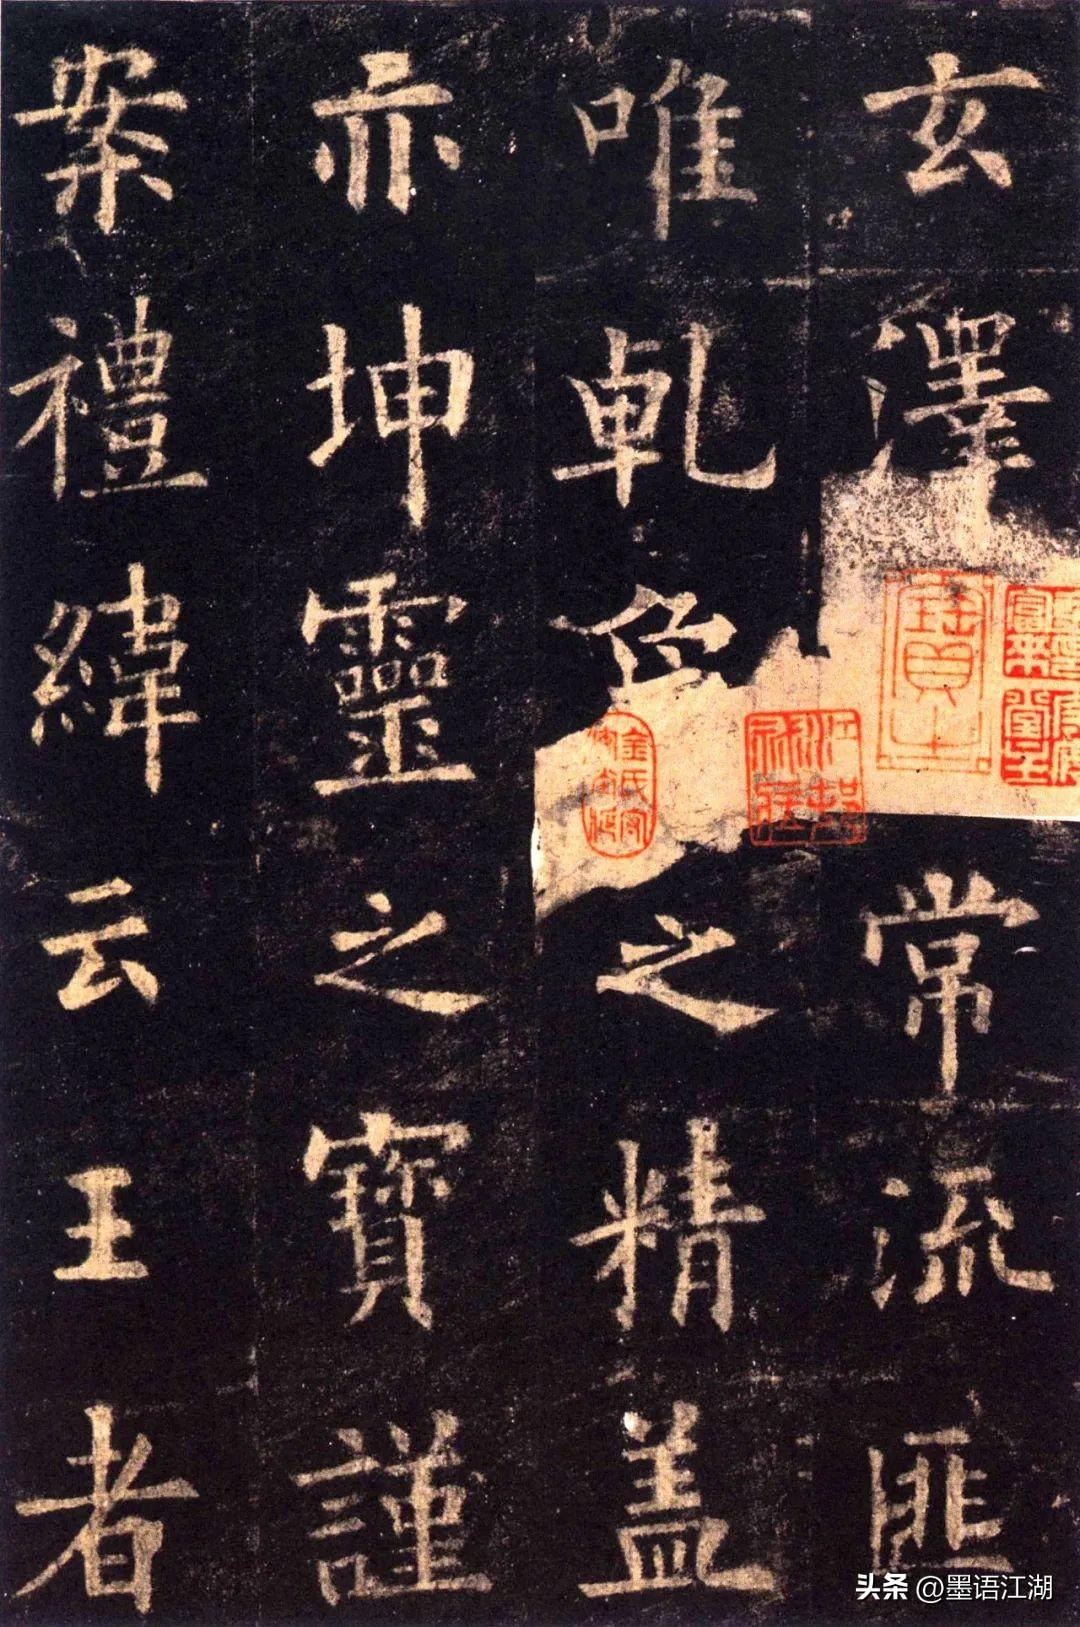 玄澤常流匪
唯乹之精盖
亦坤靈之寶謹
案禮緯云王者
頭条 @墨语江湖